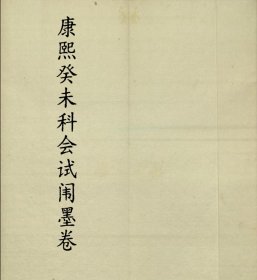 康熙癸未科会试闱墨卷